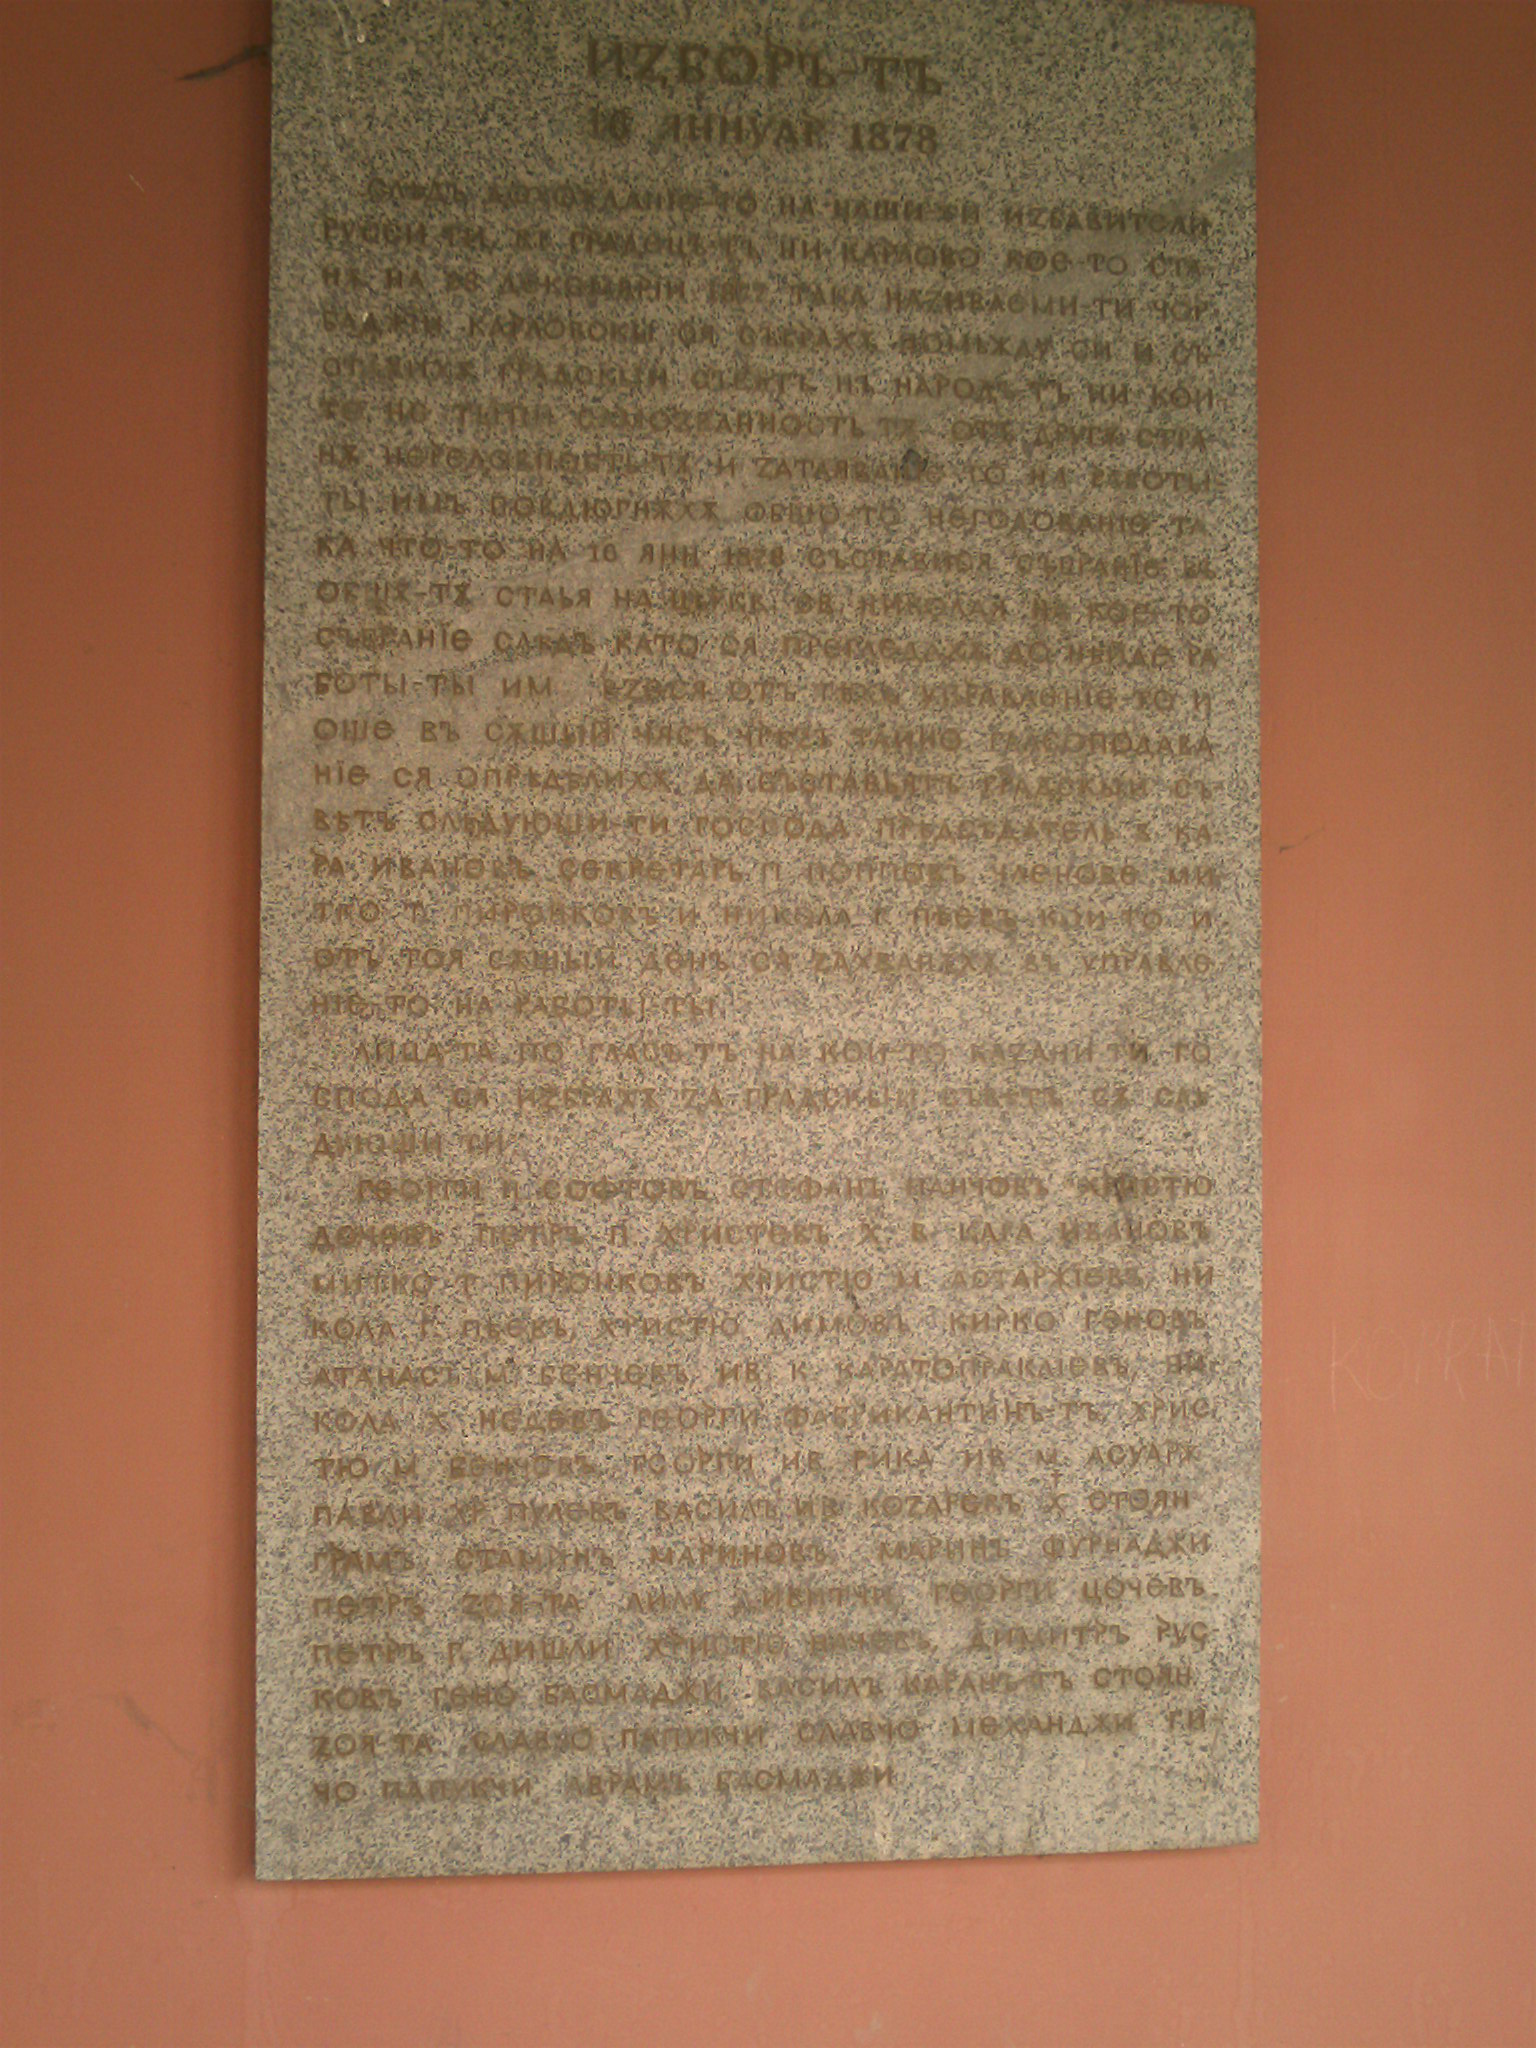 ИZБОРЪ-ТЪ
16 ЯННУАР 1878
СЛѢДЪ ДОХОЖДАНІЕ-ТО НА НАШИ-ТИ ИZБАВИТЕЛИ
РУССИ-ТИ ВЪ ГРАДЕЦЪ-ТЪ НИ КАРЛОВО КОЕ-ТО СТА-
НѪ НА ДЕКЕМВРІИ 1877 ТАКА НАZИВАЕМИ-ТИ ЧОР
БАДЖІИ КАРЛОВСКЫ СЯ СЪБРАХѪ ПОМЕЖДУ СИ И СЪ-
СТАВИХѪ ГРАДСКЫЙ СЪВѢТЪ НЪ НАРОДЪ-ТЪ НИ КОЙ-
ТО НЕ ТЪРПИ САМОZВАННОСТЬ-ТѪ ОТЪ ДРУГѪ СТРА-
НѪ НЕРЕДОВНОСТЬ-ТѪ И ZАТАЯВАНІЕ-ТО НА РАБОТЫ-
ТЫ ИМЪ ПОВДЮРНѪХѪ ОБЩО-ТО НЕГОДОВАНІЕ ТА
КА ЧТО-ТО НА 16 ЯНН 1878 СЪСТАВИСЯ СЪБРАНІЕ ВЪ
ОБЩѪ-ТѪ СТАЬЯ НА ЦЬРКВ СВ НИКОЛАЯ НА КОЕ-ТО
СЪБРАНІЕ СЛѢДЪ КАТО СЯ ПРЕГЛЕДАХѪ ДО НЕЙДЕ РА
БОТЫ-ТЫ ИМ ВZЕСЯ ОТЪ ТѢХЪ УПРАВЛЕНІЕ-ТО И
ОЩЕ ВЪ СѪЩЫЙ ЧАСЪ ЧРѢZЪ ТАЙНО ГЛАСОПОДАВА
НІЕ СЯ ОПРѢДѢЛИХѪ ДА СЪСТАВЬѬТЪ ГРАДСКЫЙ СЪ-
ВѢТЪ СЛѢДУЮЩИ-ТИ ГОСПОДА ПРѢДСѢДАТЕЛЬ Х КА
РА ИВАНОВЪ СЕКРЕТАРЬ П ПОППОВЪ ЧЛЕНОВЕ МИ-
ТКО Т ПИРОНКОВЪ И НИКОЛА Г ПѢЕВЪ КОИ-ТО И
ОТЪ ТОЯ СѪЩЫЙ ДЕНЬ СЯ ZАХВАНѪХѪ ВЪ УПРАВЛЕ
НІЕ-ТО НА РАБОТЫ-ТЫ
ЛИЦА-ТА ПО ГЛАСЪ-ТЪ НА КОИ-ТО КАZАНИ-ТИ ГО
СПОДА СЯ ИZБРАХѪ ZА ГРАДСКЫЙ СЪВѢТЪ СѪ СЛѢ
ДУЮЩИ-ТИ
ГЕОРГИ П СОФТОВЪ СТЕФАНЪ ПАНЧОВЪ ХРИСТЮ
ДОЧЕВЪ ПЕТРЪ П ХРИСТЕВЪ Х В КАРА ИВАНОВЪ
МИТКО Т ПИРОНКОВЪ ХРИСТЮ М АСТАРЖІЕВЪ НИ
КОЛА Г. ПѢЕВЪ, ХРИСТЮ ДИМОВЪ КИРКО ГЕНОВЪ
АТАНАСЪ М БЕНЧЕВЪ ИВ К КАРАТОПРАКЛІЕВЪ, НИ-
КОЛА Х НЕДЕВЪ ГЕОРГИ ФАБРИКАНТИНЪ-ТЪ, ХРИС
ТЮ М БЕНЧЕВЪ ГЕОРГИ ИВ РИКА ИВ М АСУАРѪ
ПАВЛИ ХР ПУЛЕВЪ ВАСИЛЪ ИВ КОZАРЕВЪ Х СТОЯН
ГРАМЪ СТАМИНЪ МАРИНОВЪ МАРИНЪ ФУРНАДЖИ
ПЕТРЪ ZОЯ-ТА ЛИЛУ ДИВИТЧИ ГЕОРГИ ЦОЧЕВЪ
ПЕТРЪ Г ДИШЛИ ХРИСТЮ НАЧЕВЪ, ДИМИТРЪ РУС-
КОВЪ ГЕНО БАСМАДЖИ ВАСИЛЪ КАРАНЪ-ТЪ СТОЯН
ZОЯ-ТА СЛАВЧО ПАПУКЧИ СЛАВЧО МЕХАНДЖИ ГИ-
ЧО ПАПУКЧИ АВРАМЪ БАСМАДЖИ